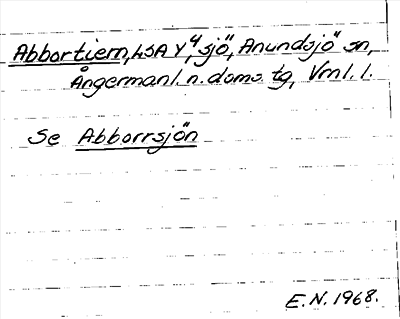 Abbortiern, LSA Y4, sjö, Anundsjö sn,
Ångermanl. n. doms. tg, Vml. l.
Se Abborrsjön
E.N. 1968.